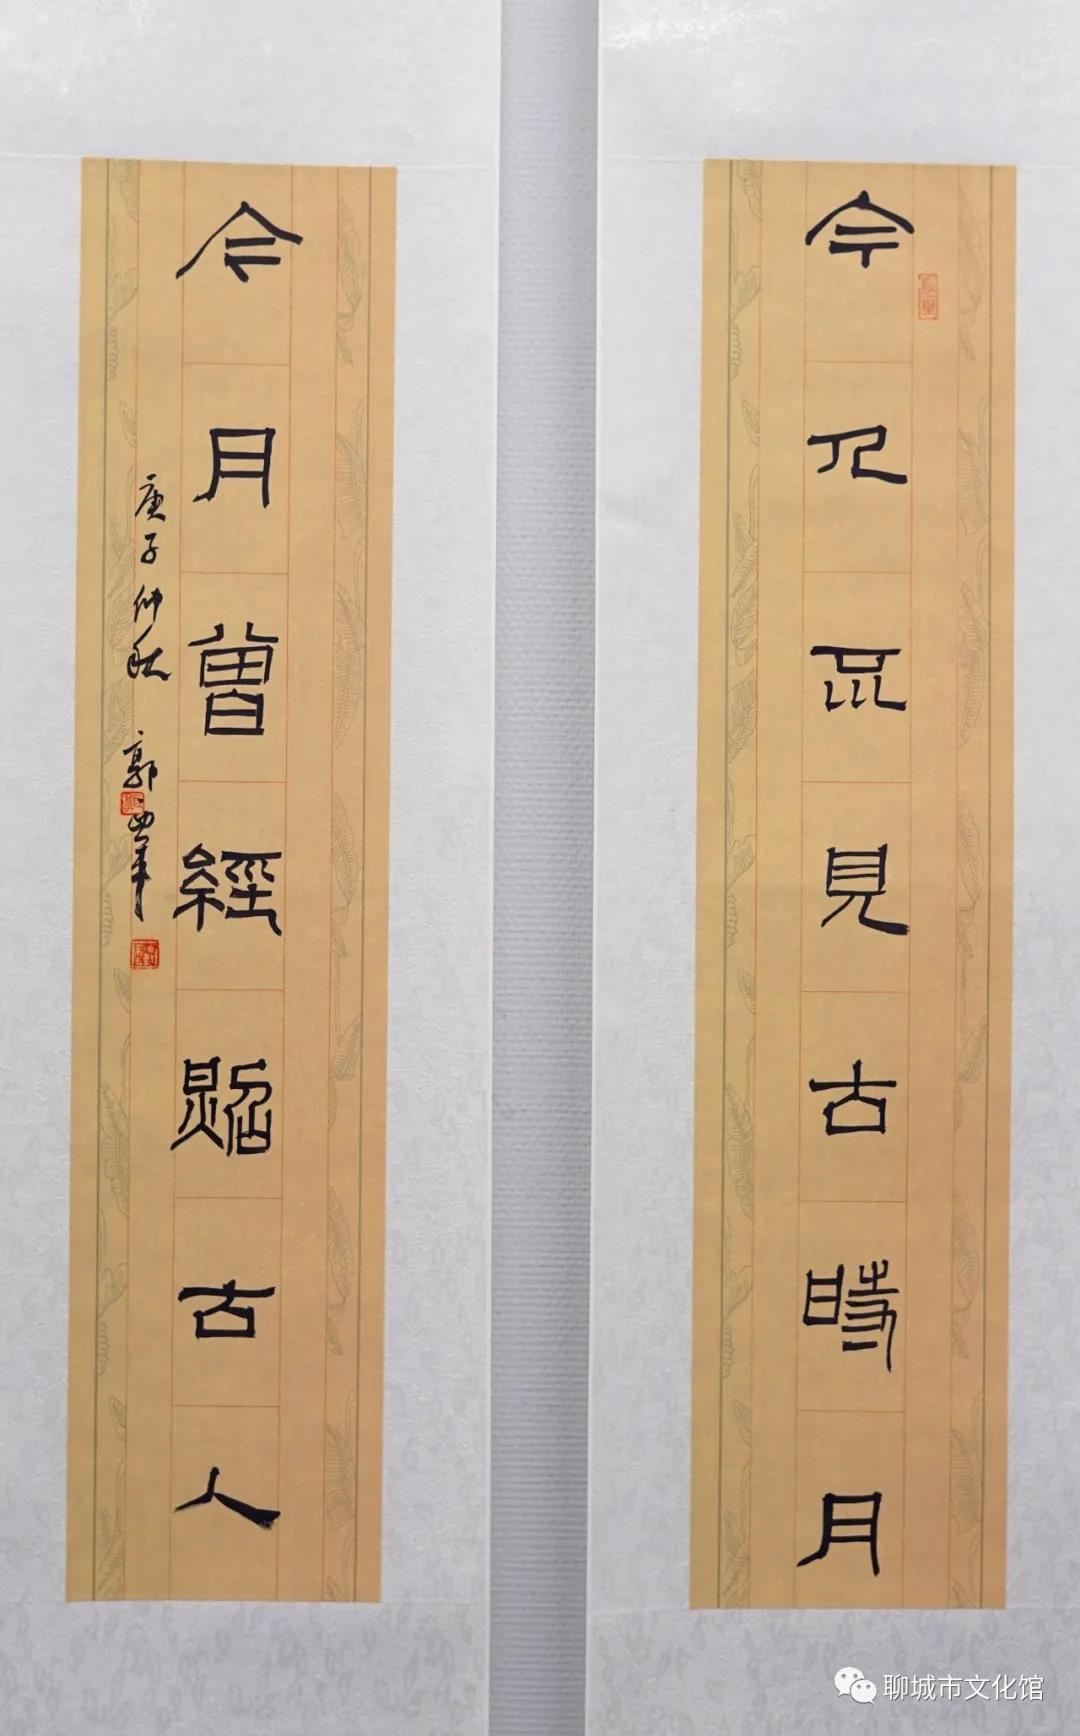 今人不見古時月
今月曾經照古人
庚子仲秋 郭
聊城市文化馆